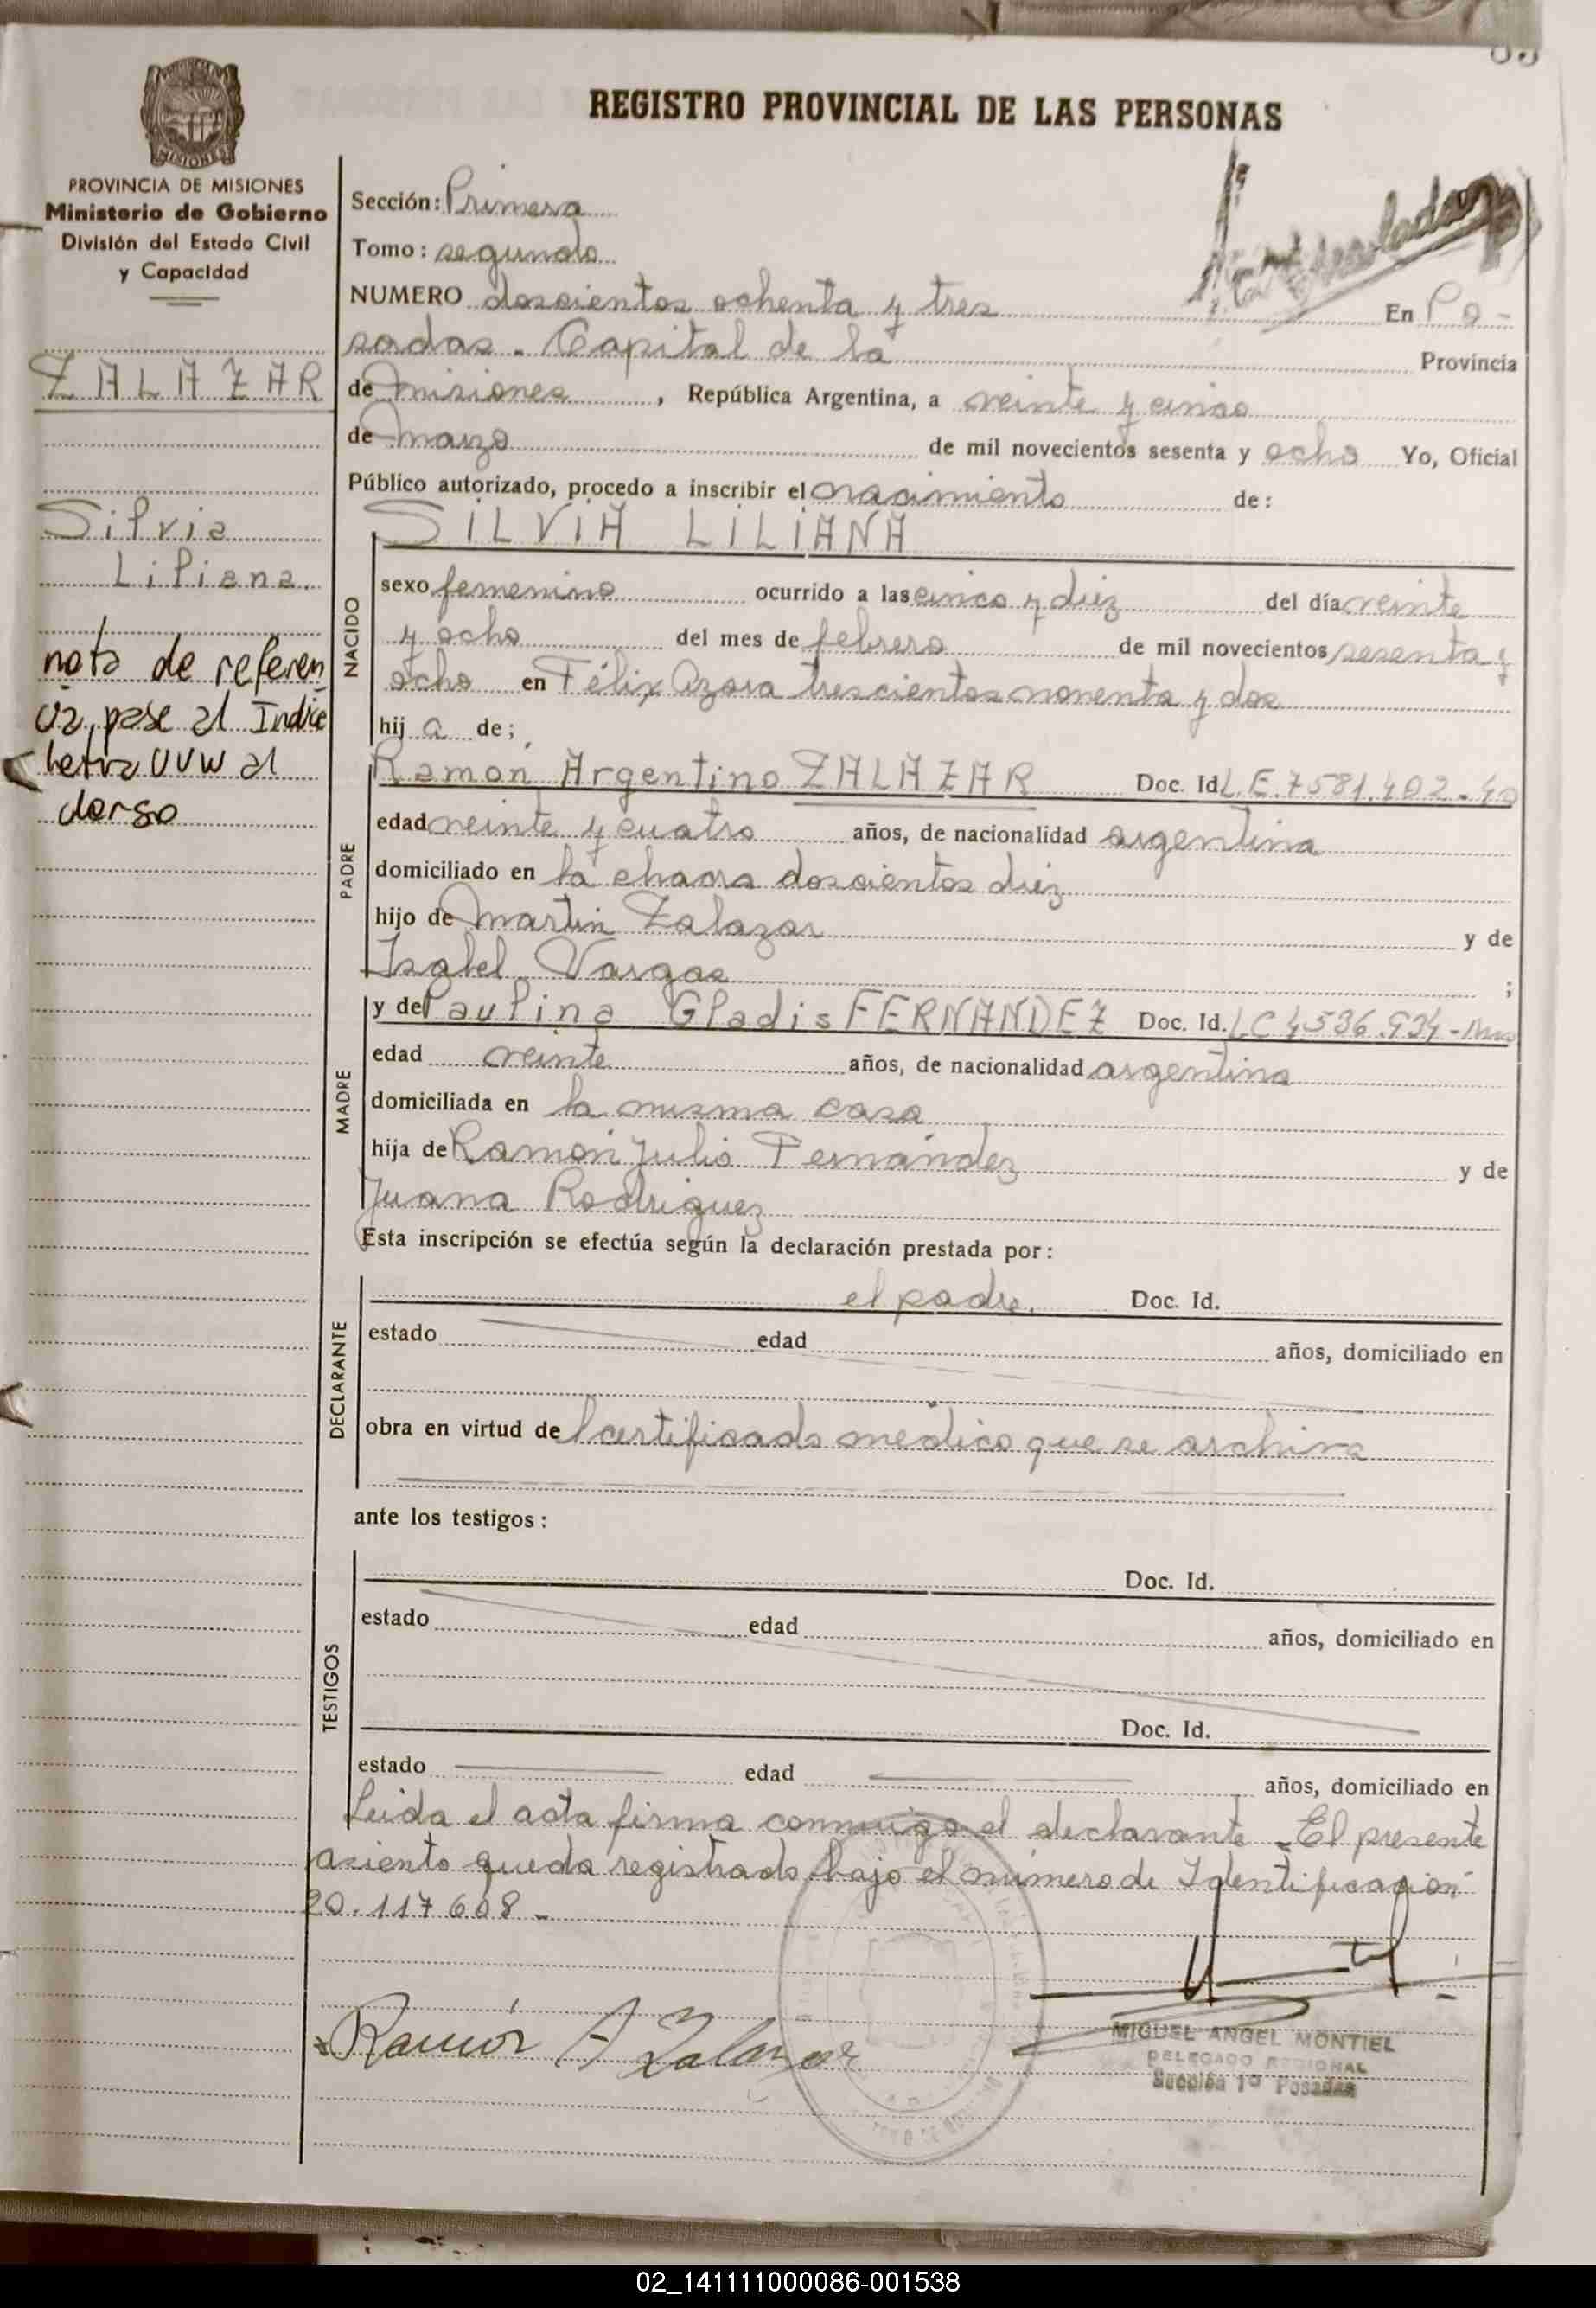 REGISTRO PROVINCIAL DE LAS PERSONAS
MISIONES
PROVINCIA DE MISIONES
Ministerio de Gobierno
División del Estado Civil
y Capacidad
ZALAZAR
Silvia
Liliana.
nota de referen
cia, pase al Indice
letra UVW al
dorso
Sección: Primera
Tomo: segundo
NUMERO doscientos ochenta y tres En Po-
sadas. Capital de la Provincia
de Misiones, República Argentina, a veinte y cinco
de Marzo de mil novecientos sesenta y ocho Yo, Oficial
Público autorizado, procedo a inscribir el nacimiento de:
SILVIA LILIANA
NACIDO
sexo femenino ocurrido a las cinco y diez del día veinte
y ocho del mes de febrero de mil novecientos sesenta y
ocho en Félix Azara trescientos noventa y dos
hij a de;
PADRE
Ramon Argentino ZALAZAR Doc. Id. L.E. 7581.402.-
edad veinte y cuatro años, de nacionalidad argentina
domiciliado en la chacra doscientos diez
hijo de Martin Zalazar y de
Isabel Vargas ;
MADRE
y de Paulina Gladis FERNANDEZ Doc. Id. LC 4.536.934-
edad veinte años, de nacionalidad argentina
domiciliada en la misma casa
hija de Ramón Julio Fernández y de
Juana Rodriguez
Esta inscripción se efectúa según la declaración prestada por:
DECLARANTE
el padre. Doc. Id.
estado edad años, domiciliado en
obra en virtud de l certificado médico que se archiva
ante los testigos:
TESTIGOS
Doc. Id.
estado edad años, domiciliado en
Doc. Id.
estado edad años, domiciliado en
Leida el acta firma conmigo el declarante. El presente
asiento queda registrado bajo el número de Identificación
20.117608.-
Ramón A Zalazar
MIGUEL ANGEL MONTIEL
DELEGADO REGIONAL
Sección 1ª Posadas
02_141111000086-001538